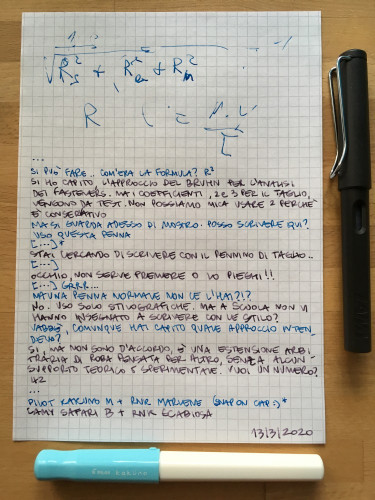 1.0
√R_s² + R_a² + R_m²
R
...
SI PUÒ FARE.. COM'ERA LA FORMULA? R²
SI HO CAPITO, L'APPROCCIO DEL BRUHN PER L'ANALISI
DEI FASTENERS. MA I COEFFICIENTI, 2 E 3 PER IL TAGLIO,
VENGONO DA TEST. NON POSSIAMO MICA USARE 2 PERCHÉ
È CONSERVATIVO
MA SI, GUARDA ADESSO TI MOSTRO. POSSO SCRIVERE QUI?
USO QUESTA PENNA
[...]*
STAI CERCANDO DI SCRIVERE CON IL PENNINO DI TAGLIO..
[...]
OCCHIO, NON SERVE PREMERE O LO PIEGHI!!
[...] GRRR...
MA UNA PENNA NORMALE NON CE L'HAI?!?
NO. USO SOLO STILOGRAFICHE. MA A SCUOLA NON VI
HANNO INSEGNATO A SCRIVERE CON LE STILO?
VABBÈ, COMUNQUE HAI CAPITO QUALE APPROCCIO INTEN-
DEVO?
SI, MA NON SONO D'ACCORDO, È UNA ESTENSIONE ARBI-
TRARIA DI ROBA PENSATA PER ALTRO, SENZA ALCUN
SUPPORTO TEORICO O SPERIMENTALE. VUOI UN NUMERO?
42
...
PILOT KAKUNO M + R&K MARUENE (SNAP ON CAP :)*
LAMY SAFARI B + R&K SCABIOSA
13/3/2020
kakuno